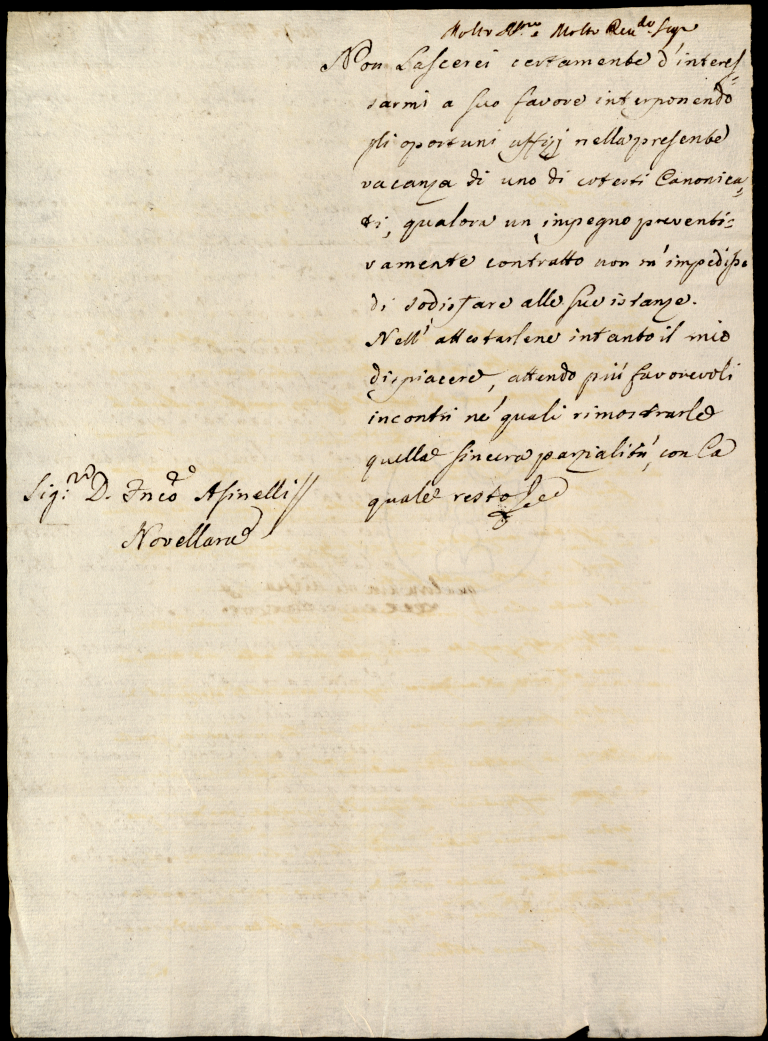 Molto Ill.re e Molto Rev.do Sig.re
Non Lascerei certamente d'interes=
sarmi a suo favore interponendo
gli oportuni uffizj nella presente
vacanza di uno di cotesti Canonica=
ti, qualora un impegno preventi=
vamente contratto non m'impedisse
di sodisfare alle sue istanze.
Nell' attestarlene intanto il mio
dispiacere, attendo più favorevoli
incontri ne' quali rimostrarle
quella sincera parzialità, con la
quale resto
Sig.r D. Fnco Asinelli //
Novellara